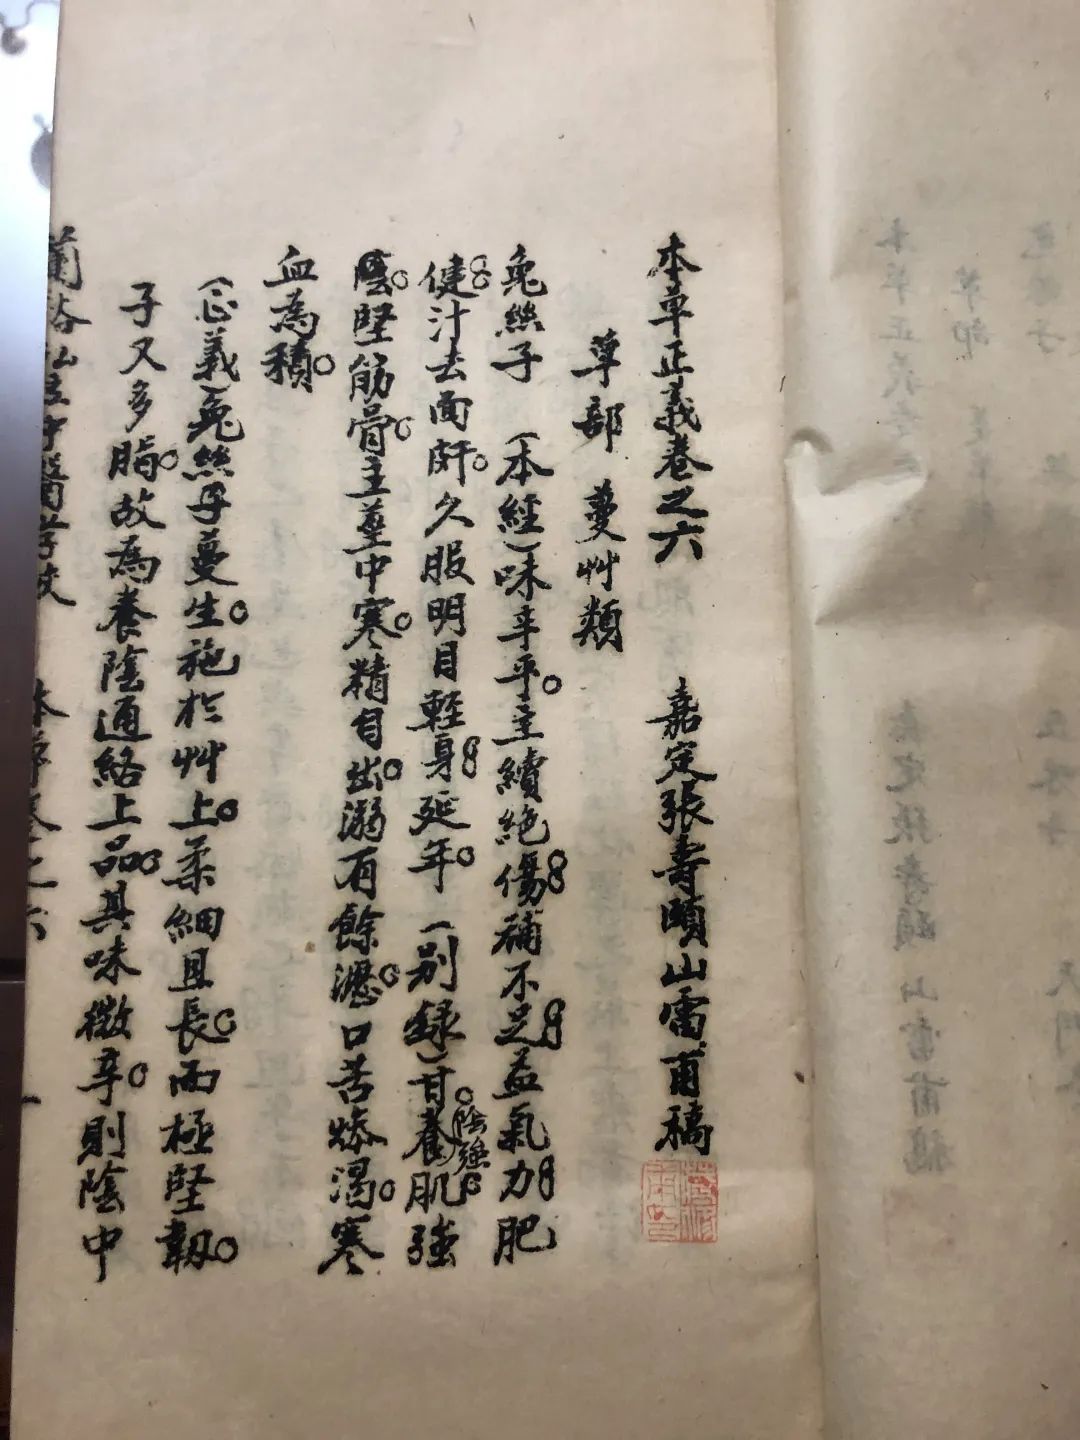 本草正義卷之六　嘉定張壽頤山雷甫稿
草部　蔓艸類
兔絲子　(本經)味辛平。主續絕傷。補不足。益氣力。肥
健。汁去面皯。久服明目輕身。延年。(別錄)甘。養肌強
陰。堅筋骨。主莖中寒。精自出。溺有餘瀝。口苦燥渴。寒
血為積。
(正義)兔絲子蔓生。施於艸上。柔細且長。而極堅韌。
子又多脂。故為養陰通絡上品。其味微辛。則陰中
蘭谿公立中醫學校　本草卷之六　一